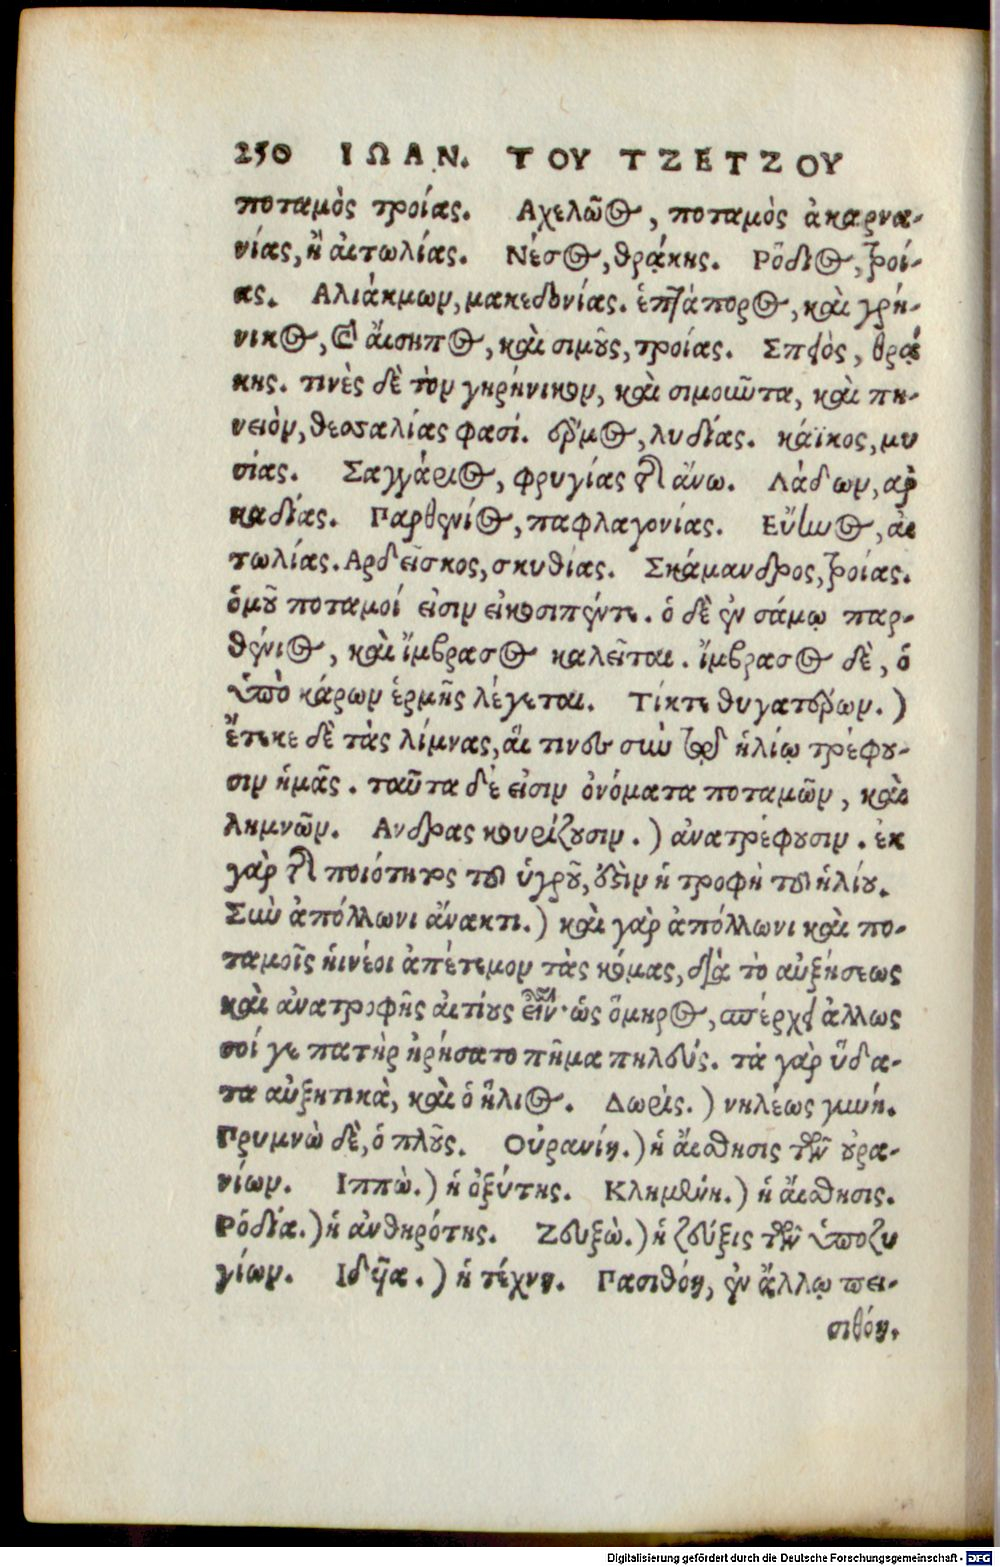 250 ΙΩΑΝ. ΤΟΥ ΤΖΕΤΖΟΥ
ποταμὸς τροίας. Αχελῶος, ποταμὸς ἀκαρνα-
νίας, ἢ αἰτωλίας. Νέσος, θράκης. Ρόδιος, τροί-
ας. Αλιάκμων, μακεδονίας. ἑπτάπορος, καὶ γρή-
νικος, καὶ αἴσηπος, καὶ σιμοῦς, τροίας. Σπτὸς, θρά
κης. τινὲς δὲ τὸν γκρήνικον, καὶ σιμοιῶτα, καὶ πη-
νειὸν, θεσσαλίας φασί. ἕρμος, λυδίας. κάϊκος, μυ
σίας. Σαγγάριος, φρυγίας τῆς ἄνω. Λάδων, αρ
καδίας. Παρθενίος, παφλαγονίας. Εὔηνος, αἰ
τωλίας. Αρδείσκος, σκυθίας. Σκάμανδρος, τροίας.
ὁμοῦ ποταμοί εἰσιν εἰκοσιπέντε. ὁ δὲ ἐν σάμῳ παρ-
θένιος, καὶ ἴμβρασος καλεῖται. ἴμβρασος δὲ, ὁ
ὑπὸ κάρων ἑρμῆς λέγεται. Τίκτε θυγατέρων.)
ἔτεκε δὲ τὰς λίμνας, αἵ τινες σὺν τῷ ἡλίῳ τρέφου-
σιν ἡμᾶς. ταῦτα δέ εἰσιν ὀνόματα ποταμῶν, καὶ
λημνῶν. Ανδρας κουρίζουσιν.) ἀνατρέφουσιν. ἐκ
γὰρ τῆς ποιότητος τοῦ ὑγροῦ, οὖσιν ἡ τροφὴ τοῦ ἡλίου.
Σὺν ἀπόλλωνι ἄνακτι.) καὶ γὰρ ἀπόλλωνι καὶ πο-
ταμοῖς ἡινέοι ἀπέτεμον τὰς κόμας, διὰ τὸ αὐξήσεως
καὶ ἀνατροφῆς αἰτίους εἶναι. ὡς ὅμηρος, σπέρχει ἄλλως
σοί γε πατὴρ ἠρήσατο πῆμα πηλεύς. τὰ γὰρ ὕδα-
τα αὐξητικὰ, καὶ ὁ ἥλιος. Δωρίς.) νηλέως γυνή.
Πρυμνὼ δὲ, ὁ πλοῦς. Οὐρανίη.) ἡ αἴσθησις τῶν οὐρα-
νίων. Ιππὼ.) ἡ ὀξύτης. Κλημένη.) ἡ αἴσθησις.
Ρόδια.) ἡ ἀνθηρότης. Ζευξὼ.) ἡ ζεύξις τῶν ὑποζυ
γίων. Ιδῆα.) ἡ τέχνη. Πασιθόη, ἐν ἄλλῳ πει-
σιθόη.
Digitalisierung gefördert durch die Deutsche Forschungsgemeinschaft - DFG